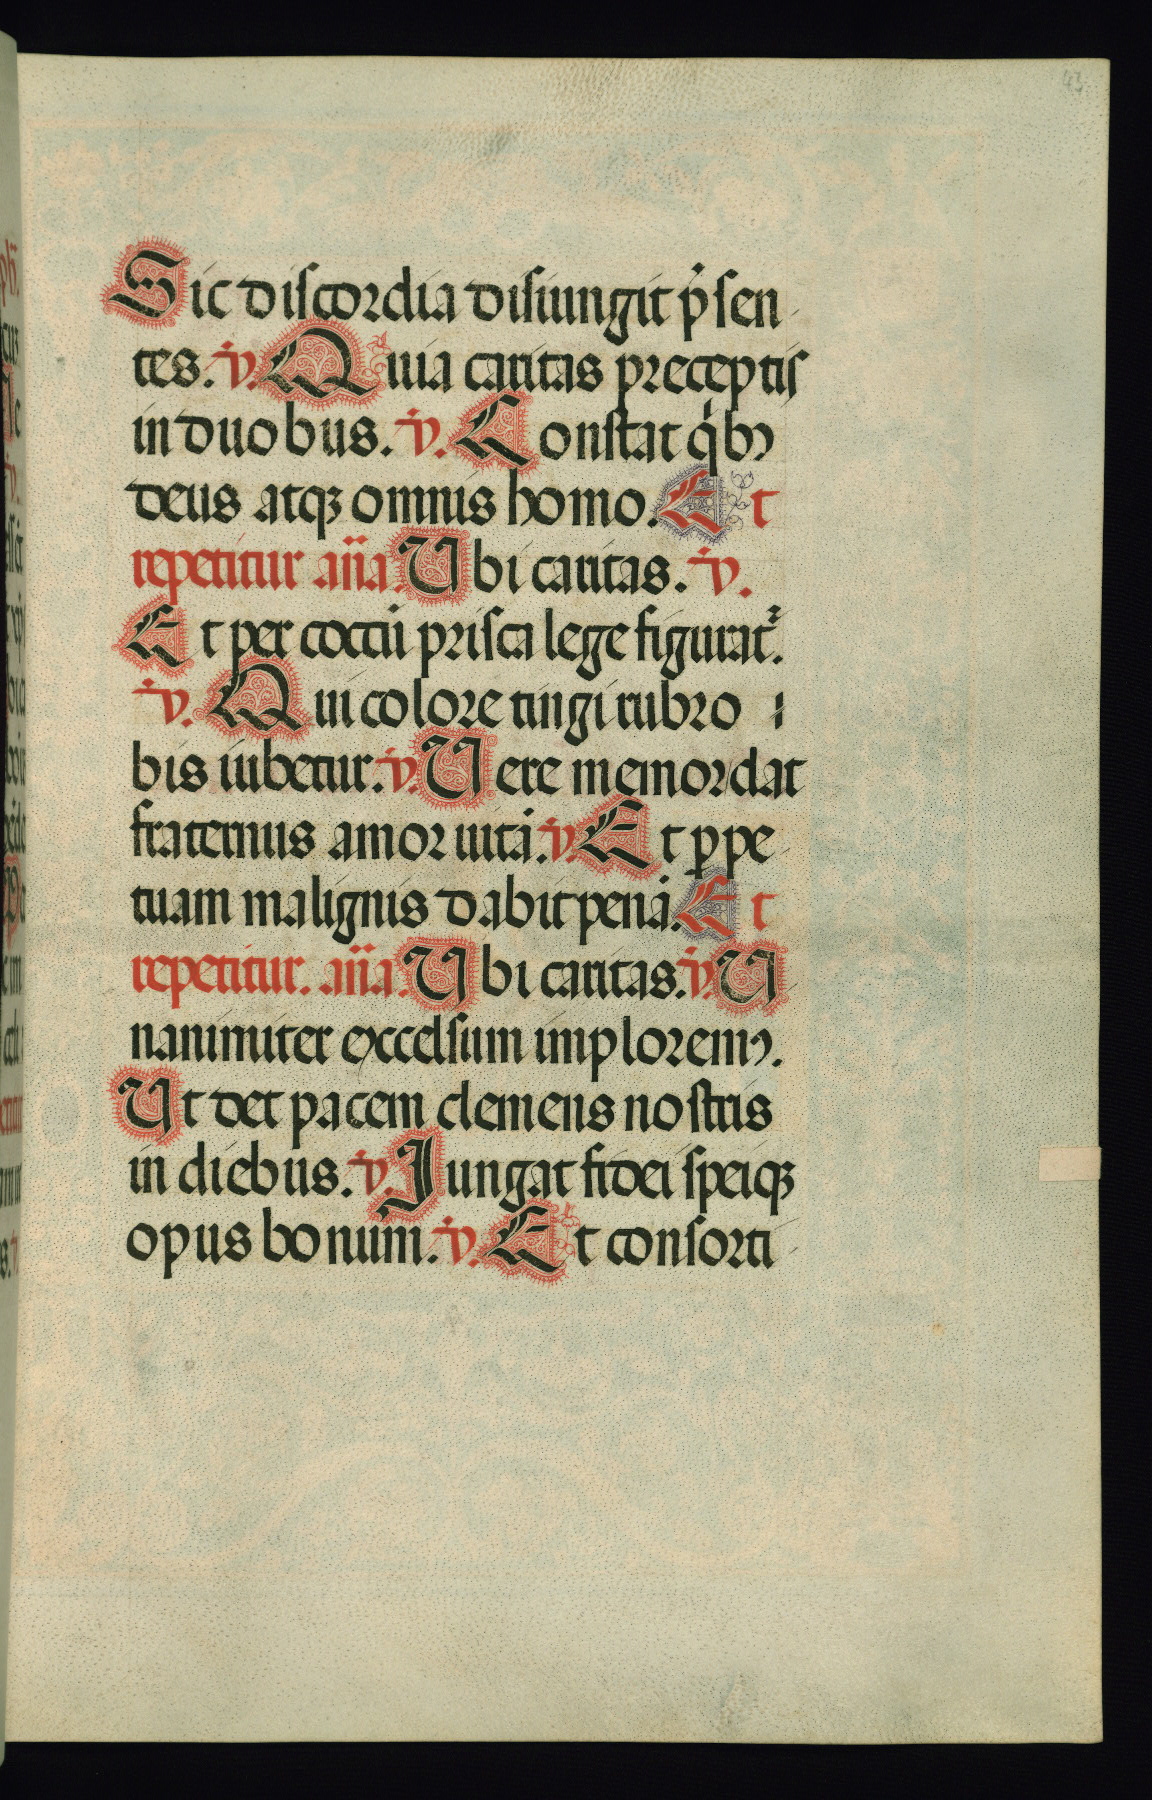 43
Sic discordia disiungit p̃sen
tes. ℣. Quia caritas preceptis
in duobus. ℣. Constat qͥbꝰ
deus atqꝫ omnis homo. Et
repetitur añа. Ubi caritas. ℣.
Et per coccū prisca lege figurat᷑.
℣. Qui colore tingi rubro
bis iubetur. ℣. Vere memordat
fraternus amor uitā. ℣. Et ꝑpe
tuam malignis dabit penā. Et
repetitur. aña. Ubi caritas. ℣. U
nanimiter excelsum imploremꝰ.
Ut det pacem clemens nostris
in diebus. ℣. Jungat fidei speiqꝫ
opus bonum. ℣. Et consorti